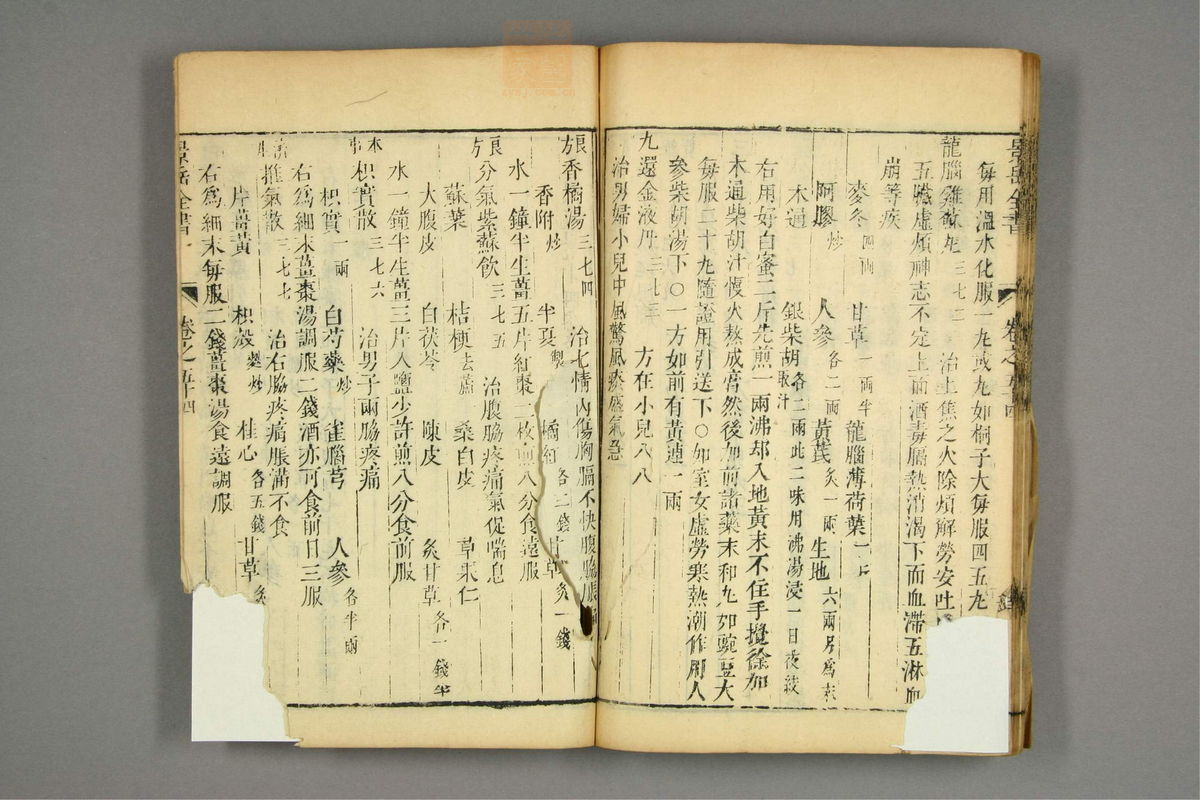 每用溫水化服一丸或丸如桐子大每服四五丸
龍腦雞蘇丸 三七二 治上焦之火除煩解勞安吐
五臟虛煩神志不定上而酒毒膈熱消渴下而血滯五淋血
崩等疾
麥冬 四兩 甘草 一兩半 龍腦薄荷葉 一斤
阿膠 炒 人參 各二兩 黃芪 炙一兩 生地 六兩另爲末
木通 銀柴胡 各二兩此二味用沸湯浸一日夜絞取汁
右用好白蜜二斤先煎一兩沸却入地黃末不住手攪徐加
木通柴胡汁慢火熬成膏然後加前諸藥末和丸如豌豆大
每服二十丸隨證用引送下○如室女虛勞寒熱潮作用人
參柴胡湯下○一方如前有黃連一兩
九還金液丹 三七三 方在小兒八八
治男婦小兒中風驚風痰盛氣急
景岳全書 卷之五十四
良方香橘湯 三七四 治七情內傷胸膈不快腹脇脹
香附 炒 半夏 製 橘紅 各二錢 甘草 炙一錢
水一鐘半生薑五片紅棗二枚煎八分食遠服
良方分氣紫蘇飲 三七五 治腹脇疼痛氣促喘息
蘇葉 桔梗 去蘆 桑白皮 草果仁
大腹皮 白茯苓 陳皮 炙甘草 各一錢半
水一鐘半生薑三片入鹽少許煎八分食前服
本事枳實散 三七六 治男子兩脇疼痛
枳實 一兩 白芍藥 炒 雀腦芎 人參 各半兩
右爲細末薑棗湯調服二錢酒亦可食前日三服
推氣散 三七七 治右脇疼痛脹滿不食
片薑黃 枳殻 麩炒 桂心 各五錢 甘草 炙
右爲細末每服二錢薑棗湯食遠調服
景岳全書 卷之五十四